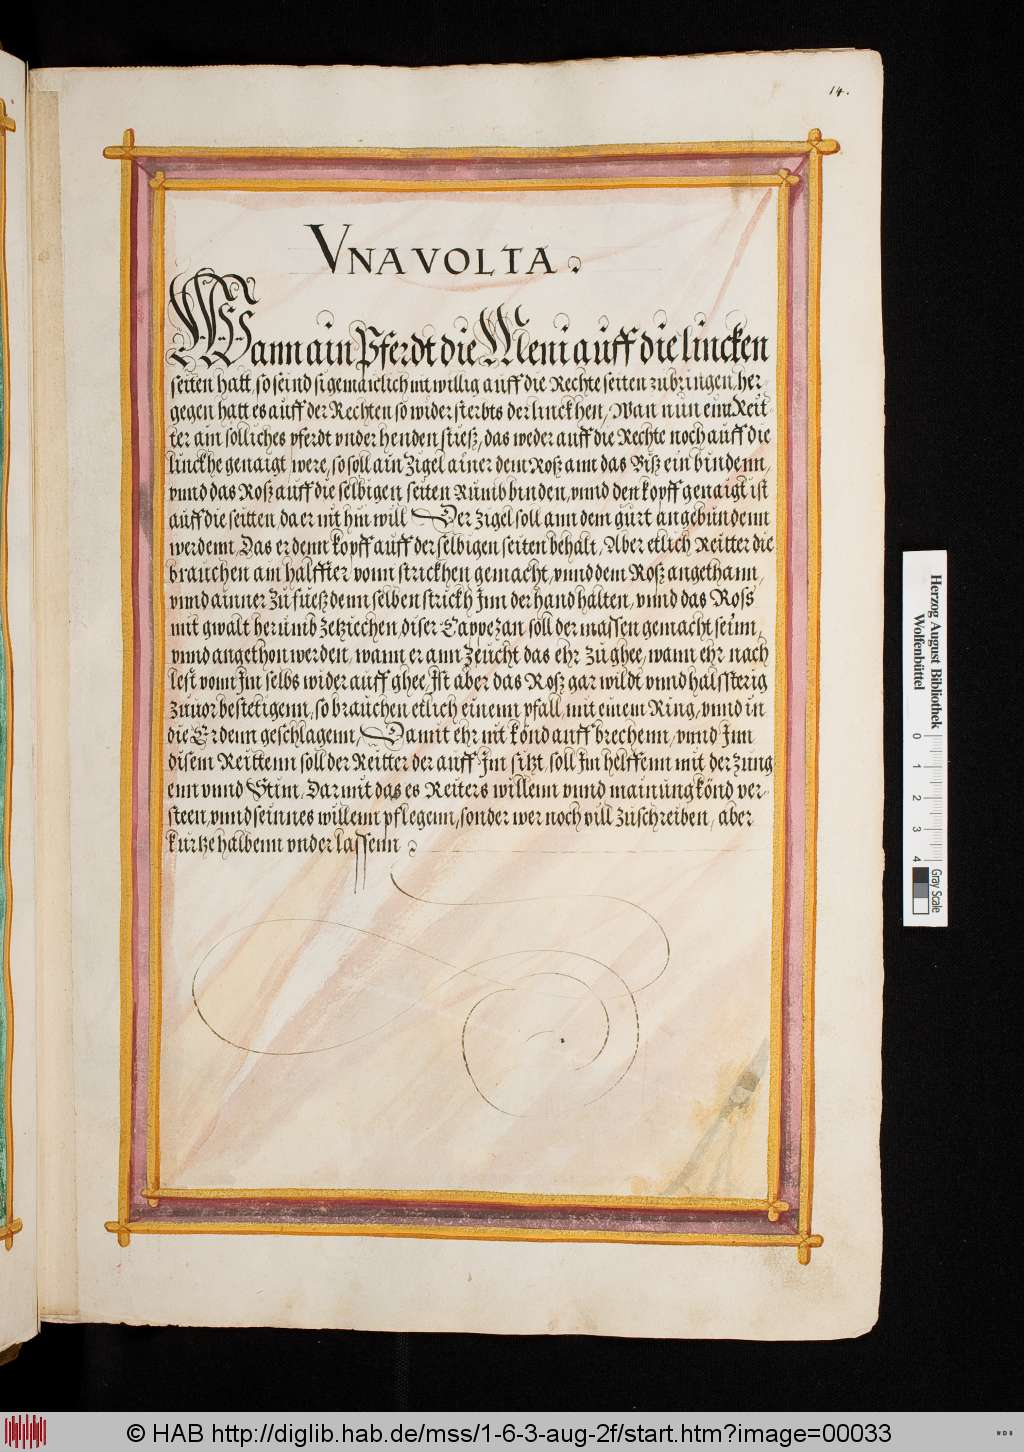 14.
VNA VOLTA.
Wann ain Pferdt die Meni auff die lincken
seiten hatt, so seind si gemainclich nit willig auff die Rechte seiten zubringen, her,
gegen hatt es auff der Rechten so widersterbts der linckhen, Wan nun einn Reit-
ter ain solliches pferdt vnderhenden stieß, das weder auff die Rechte noch auff die
linckhe genaigt were, so soll ain Zigel ainer dem Roß ann das Biß einbindenn,
vnnd das Roß auff die selbigen seiten Rumb binden, vnnd den kopff genaigt ist
auff die seitten, da er nit hin will Der Zigel soll ann dem gurt angebundenn
werdenn, Das er denn kopff auff der selbigen seiten behalt, Aber etlich Reitter die
brauchen ain halffter vonn strickhen gemacht, vnnd dem Roß angethann,
vnnd ainner Zu fueß denn selben strickh Inn der hand halten, vnnd das Ross
mit gwalt herumb Zeziechen, diser Cavvezan soll der massen gemacht seinn,
vnnd angethon werden, wann er ann Zeucht das ehr Zu ghee, wann ehr nach
lest vonn Im selbs wider auff ghee, Ist aber das Roß gar wildt vnnd halssterig
Zuuor bestetigenn, so brauchen etlich einenn pfall, mit einem Ring, vnnd in
die Erdenn geschlagenn, Damit ehr nit könd auff brechenn, vnnd Inn
disem Reittenn soll der Reitter der auff Im sitzt, soll Im helffenn mit der Zung
enn vnnd Stim, Darmit das es Reiters willenn vnnd mainung könd ver-
steen, vnnd seinnes willenn pflegenn, sonder wer noch vill Zuschreiben, aber
kurtze halbenn vnderlassenn
Herzog August Bibliothek
Wolfenbüttel
0 1 2 3 4
Gray Scale
© HAB http://diglib.hab.de/mss/1-6-3-aug-2f/start.htm?image=00033